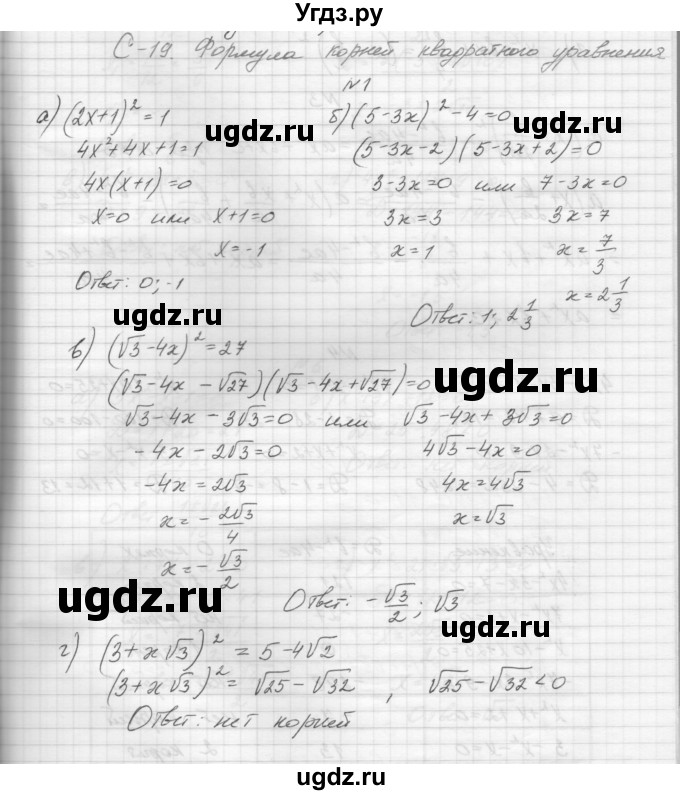 Угдз.ру
С-19. Формула корней квадратного уравнения
N1
а) (2x+1)² = 1
4x²+4x+1=1
4x(x+1)=0
x=0 или x+1=0
x=-1
Ответ: 0; -1
б) (5-3x)² -4=0
(5-3x-2)(5-3x+2)=0
3-3x=0 или 7-3x=0
3x=3 3x=7
x=1 x=7/3
x=2 1/3
Ответ: 1; 2 1/3
в) (√3-4x)²=27
(√3-4x-√27)(√3-4x+√27)=0
√3-4x-3√3=0 или √3-4x+3√3=0
-4x-2√3=0 4√3-4x=0
-4x=2√3 4x=4√3
x=-2√3/4 x=√3
x=-√3/2
Ответ: -√3/2; √3
г) (3+x√3)² = 5-4√2
(3+x√3)² = √25-√32, √25-√32<0
Ответ: нет корней
ugdz.ru
ugdz.ru
ugdz.ru
ugdz.ru
ugdz.ru
ugdz.ru
ugdz.ru
ugdz.ru
ugdz.ru